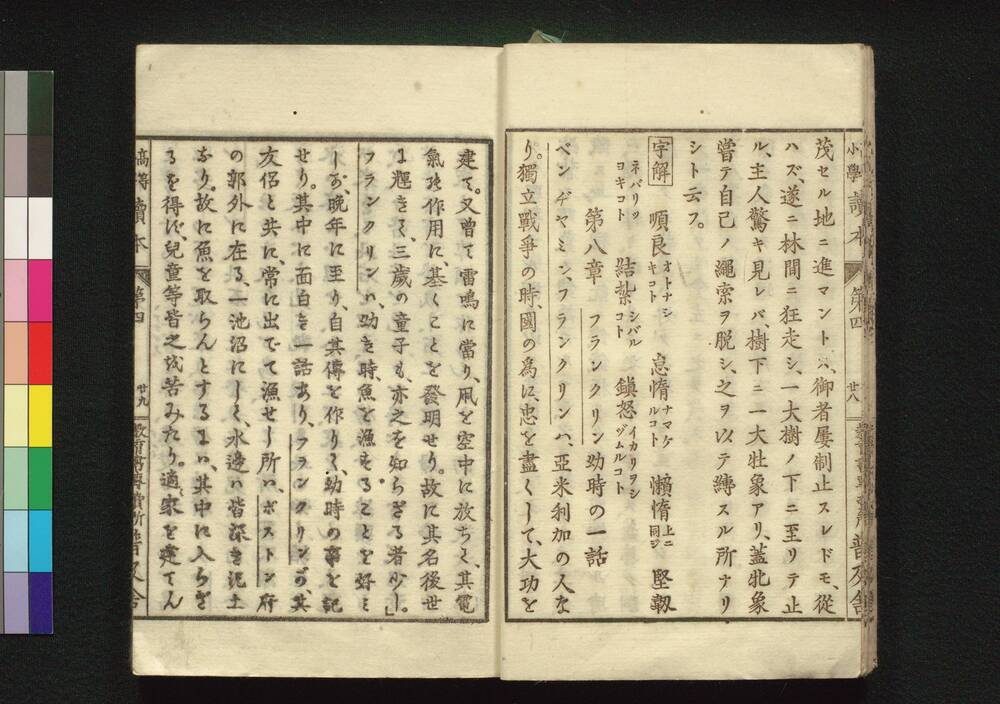 茂セル地ニ進マントハ、御者屢制止スレドモ、從
ハズ、遂ニ林間ニ狂走シ、一大樹ノ下ニ至リテ止
ル、主人驚キ見レバ、樹下ニ一大牡象アリ、蓋牝象
嘗テ自己ノ繩索ヲ脱シ、之ヲ以テ縛スル所ナリ
シト云フ。
字解 順良 オトナシキコト 怠惰 ナマケルコト 懶惰 上ニ同ジ 堅靱
ネバリツヨキコト 結紮 シバルコト 鎭怒 イカリヲシヅムルコト
第八章 フランクリン幼時の一話
ベンヂヤミン、フランクリンハ、亞米利加の人な
り。獨立戰爭の時、國の爲に、忠を盡くして、大功を
小學讀本 第四 廿八 普及舎
建て。又曾て雷鳴に當り、凧を空中に放ちて、其電
氣の作用に、基くことを發明せり。故に其名後世
に輝きて、三歳の童子も、亦之を知らざる者少し。」
フランクリンハ、幼き時、魚を漁することを好み
しが、晩年に至り、自其傳を作りて、幼時の事を記
せり。其中に面白き一話あり、フランクリンが、其
友侶と共に、常に出でて漁せし所ハ、ボストン府
の郭外に在る、一池沼にして、水邊ハ皆深き泥土
なり。故に魚を取らんとするにハ、其中に入らざ
るを得ず、兒童等皆之に苦みたり。適家を建てん
高等讀本 第四 廿九 教育書專賣所 普及舎